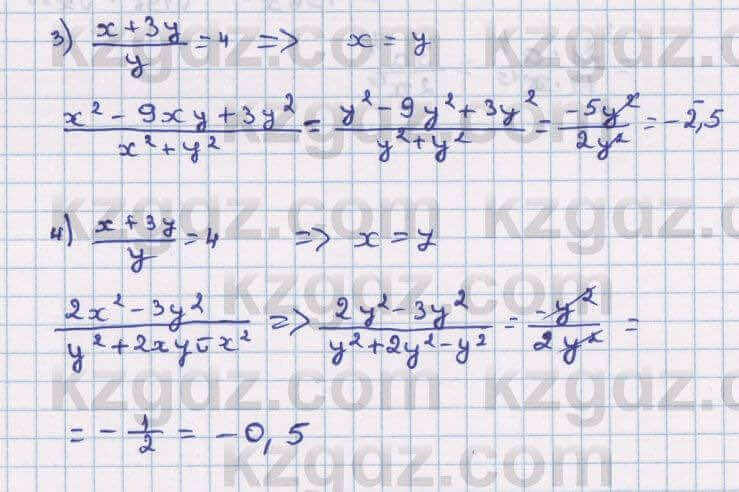 3) (x + 3y)/y = 4 => x = y
(x² - 9xy + 3y²)/(x² + y²) = (y² - 9y² + 3y²)/(y² + y²) = (-5y²)/(2y²) = -2,5
4) (x + 3y)/y = 4 => x = y
(2x² - 3y²)/(y² + 2xy - x²) => (2y² - 3y²)/(y² + 2y² - y²) = (-y²)/(2y²) =
= -1/2 = -0,5
kzgdz.com